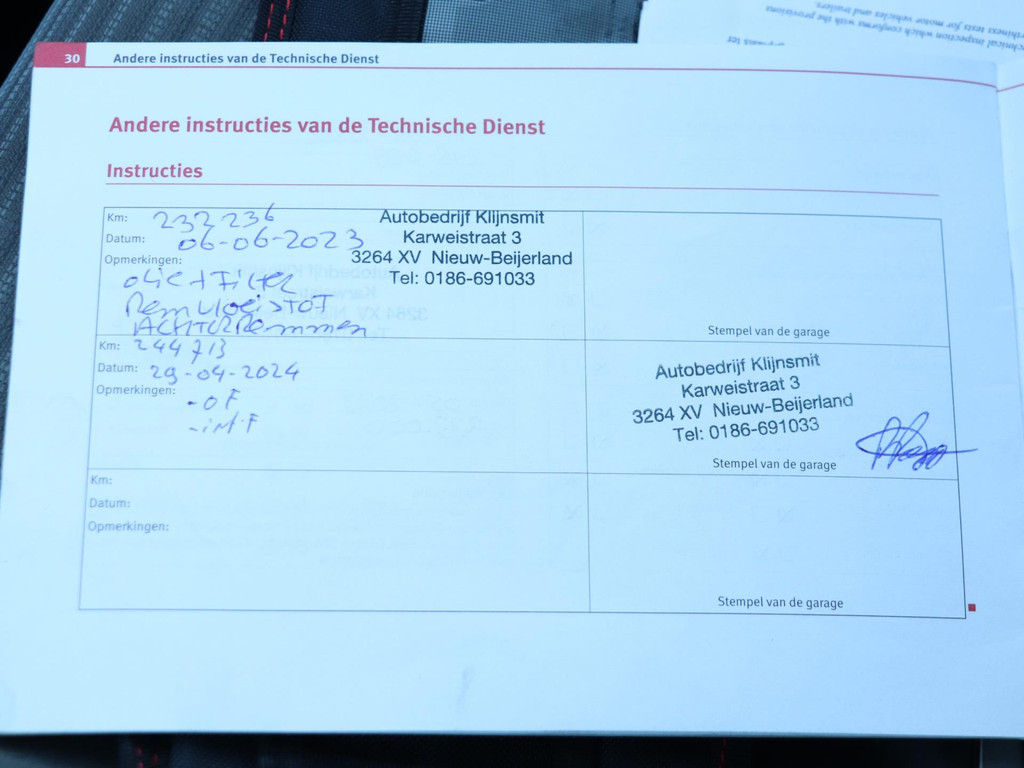 30 Andere instructies van de Technische Dienst
Andere instructies van de Technische Dienst
Instructies
Km: 232236
Datum: 06-06-2023
Opmerkingen:
olie + Filter
Remvloeistof
ACHTER Remmen
Autobedrijf Klijnsmit
Karweistraat 3
3264 XV Nieuw-Beijerland
Tel: 0186-691033
Stempel van de garage
Km: 244713
Datum: 29-04-2024
Opmerkingen:
-OF
-iNtF
Autobedrijf Klijnsmit
Karweistraat 3
3264 XV Nieuw-Beijerland
Tel: 0186-691033
Stempel van de garage
Km:
Datum:
Opmerkingen:
Stempel van de garage
technical inspection which conforms with the provisions
tests for motor vehicles and trailers.